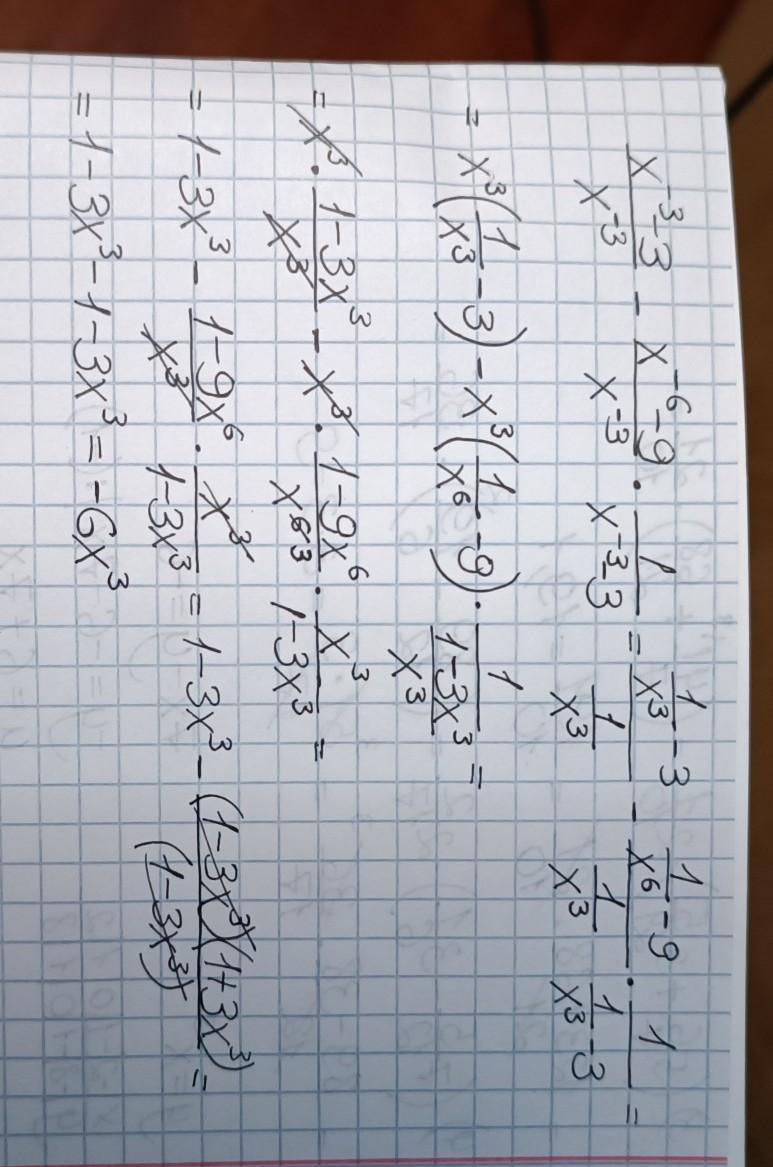 (x⁻³-3)/x⁻³ - (x⁻⁶-9)/x⁻³ · 1/(x⁻³-3) = (1/x³ - 3)/(1/x³) - (1/x⁶ - 9)/(1/x³) · 1/(1/x³ - 3) =
= x³(1/x³ - 3) - x³(1/x⁶ - 9) · 1/((1-3x³)/x³) =
= x³ · (1-3x³)/x³ - x³ · (1-9x⁶)/x⁶ ³ · x³/(1-3x³) =
= 1-3x³ - (1-9x⁶)/x³ · x³/(1-3x³) = 1-3x³ - (1-3x³)(1+3x³)/(1-3x³) =
= 1-3x³-1-3x³ = -6x³